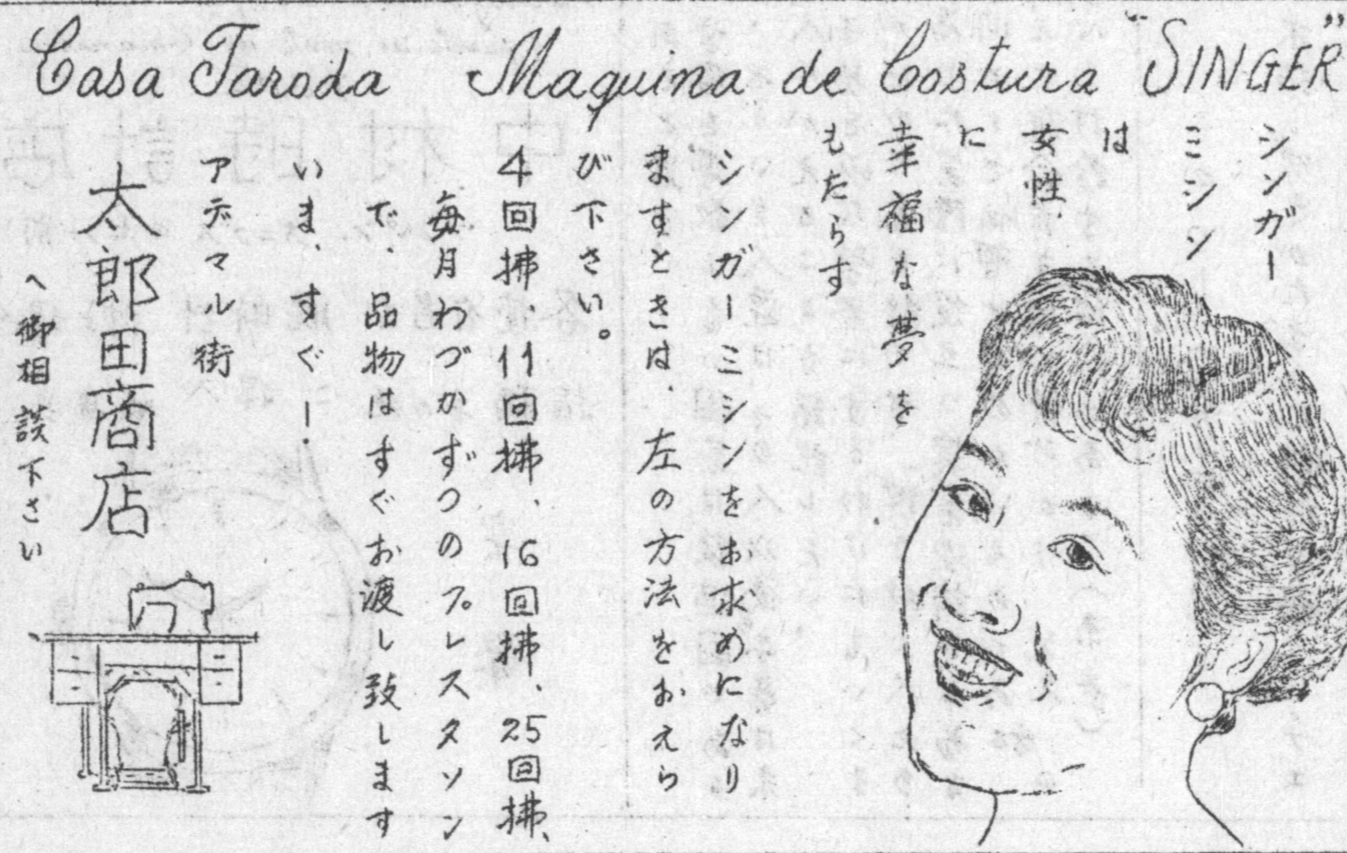 Casa Taroda Maquina de Costura "SINGER"
シンガー
ミシン
は
女性
に
幸福な夢を
もたらす
シンガーミシンをお求めになり
ますときは、左の方法をおえら
び下さい。
4回拂、11回拂、16回拂、25回拂、
毎月わづかずつのプレスタソン
で、品物はすぐお渡し致します
いま、すぐー!
アデマル街
太郎田商店
へ御相談下さい